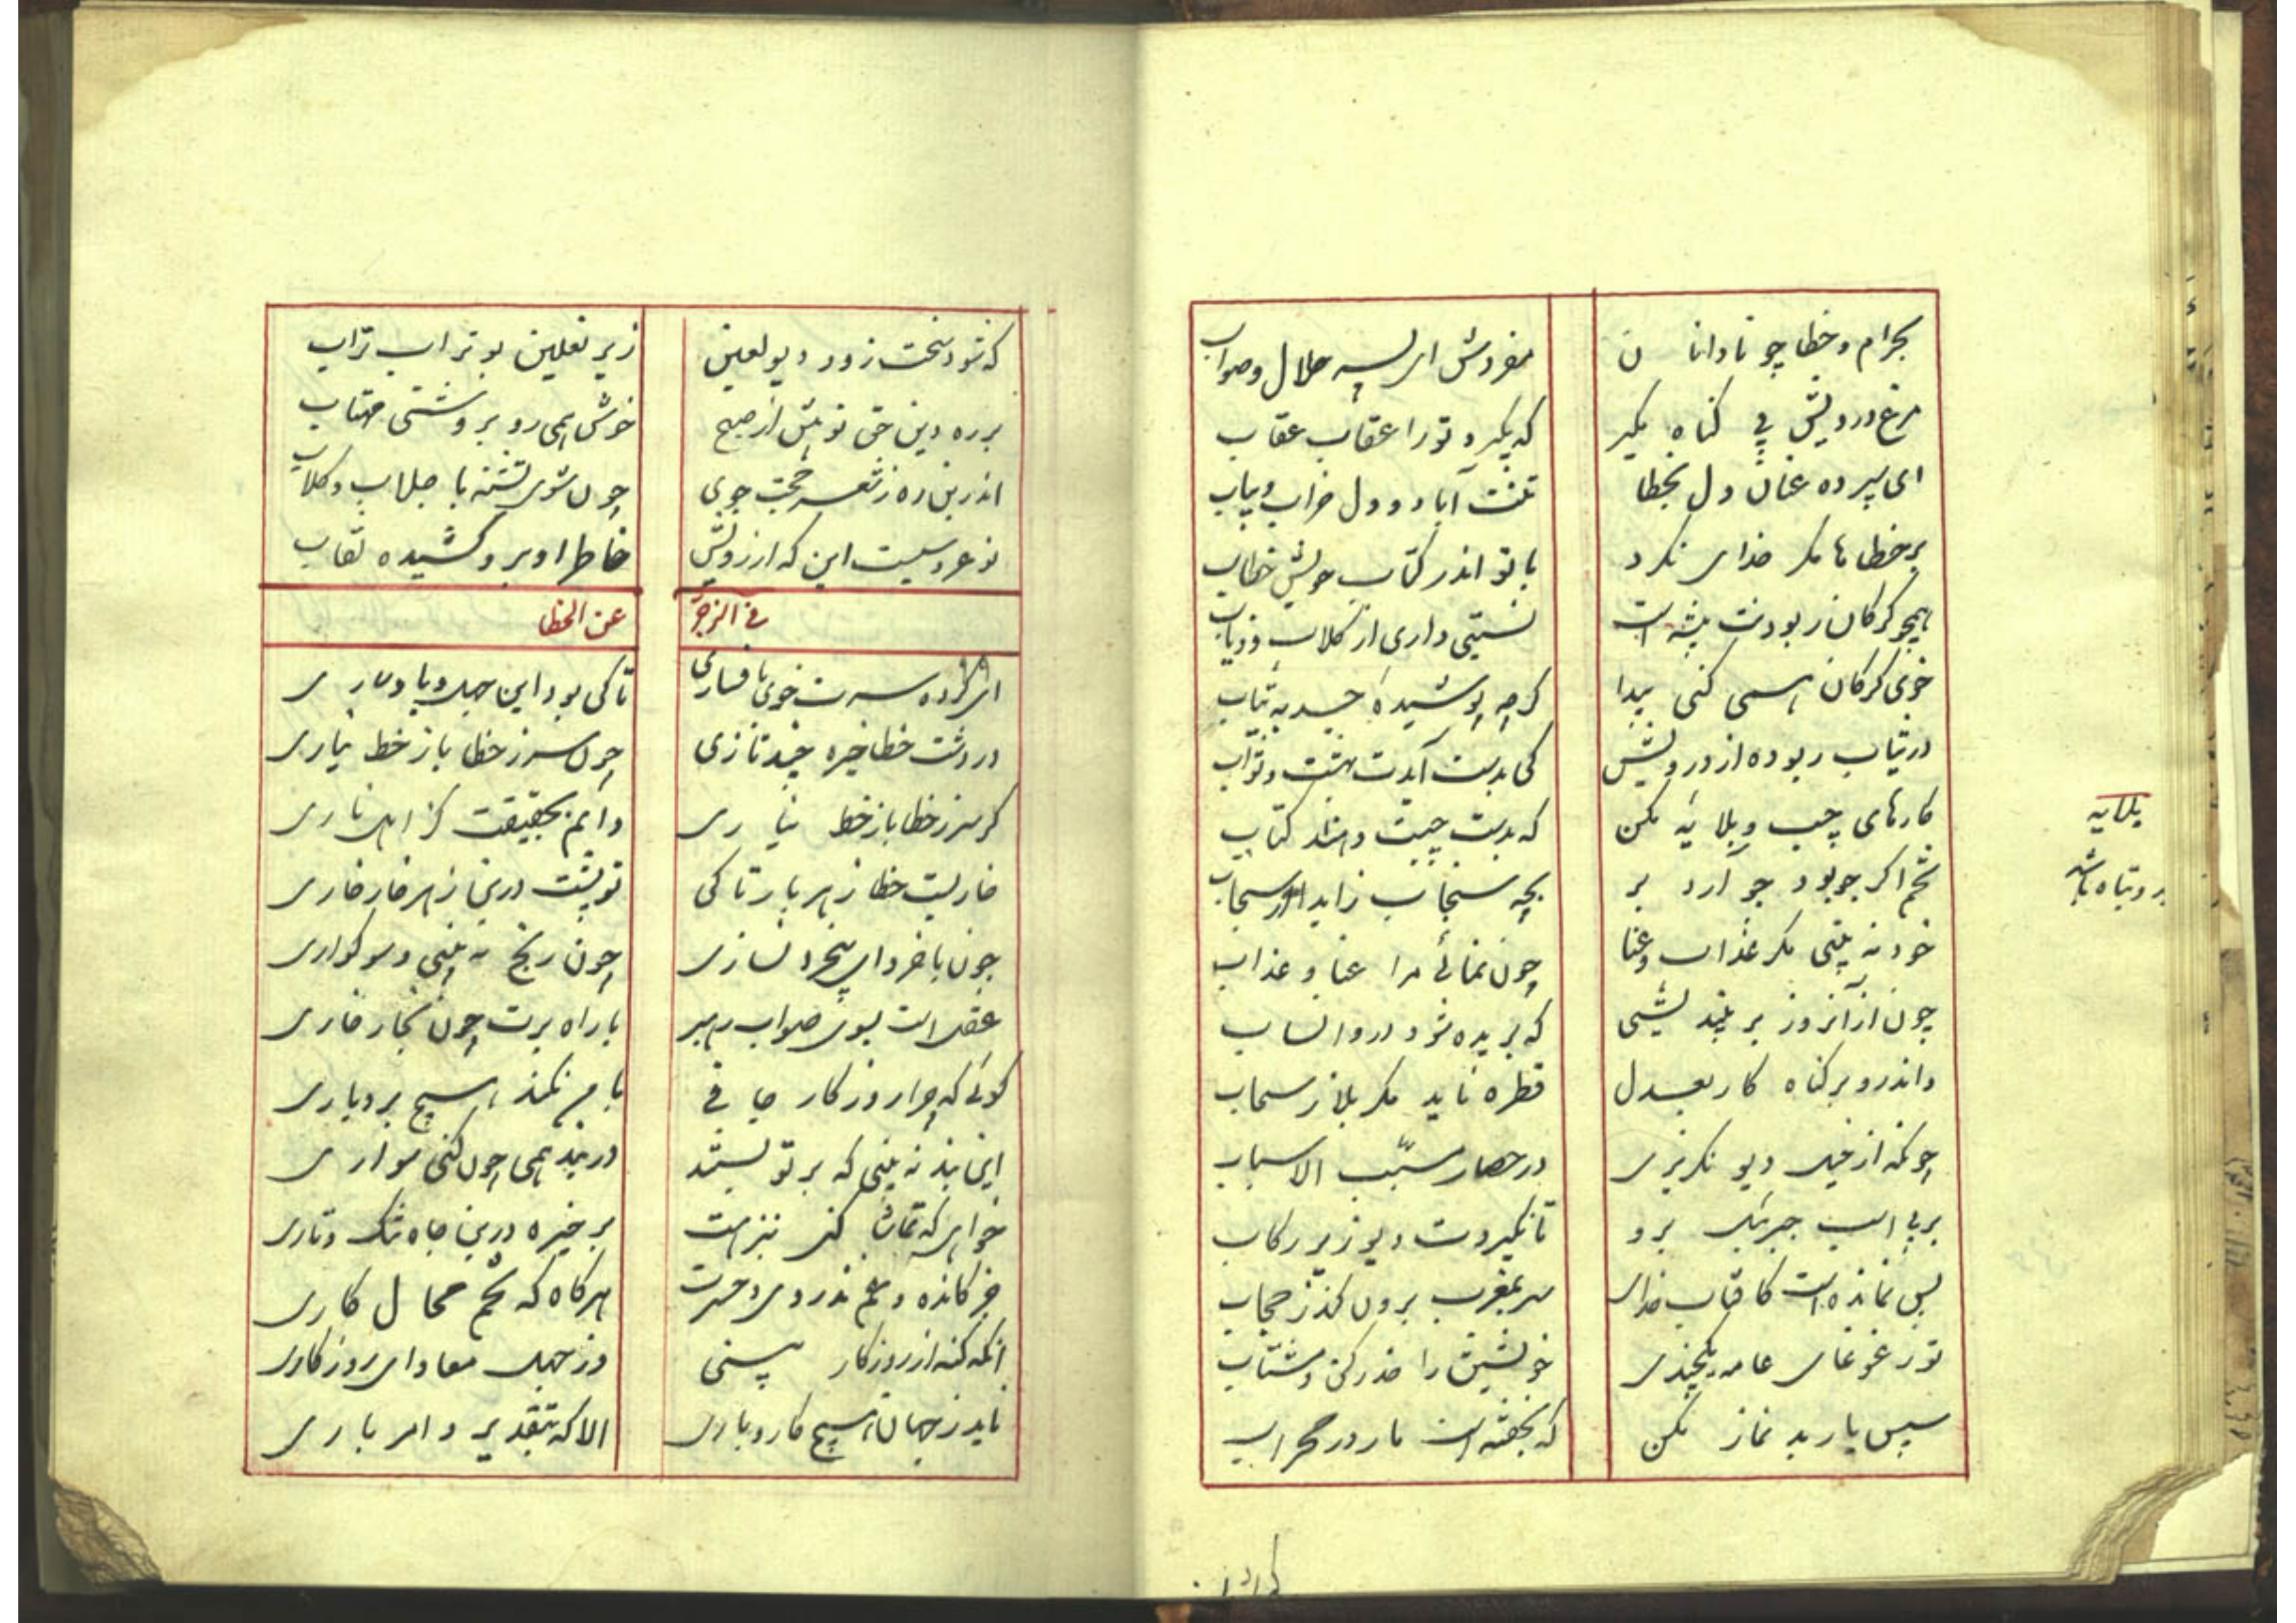 بحرام و خطا چو نادانان
مفروش ای پسر حلال و صواب
مرغ درویش بی گناه مگیر
که بگیرد تو را عقاب عقاب
ای سپرده عنان دل بخطا
تنت آباد و دل خراب و یباب
بر خطاها مگر خدای نکرد
با تو اندر کتاب خویش خطاب
همچو گرگان ربودنت پیشه است
نسبتی داری از کلاب و ذیاب
خوی گرگان همی کنی پیدا
گرچه پوشیدهٔ جسد به ثیاب
در ثیاب ربوده از درویش
کی بدست آیدت بهشت و ثواب
کارهای چپ و بلایه مکن
که بدست چپت دهند کتاب
تخم اگر جو بود جو آرد بر
بچه سنجاب زاید از سنجاب
خود نه بینی مگر عذاب و عنا
چون نمائی مرا عنا و عذاب
چون از آنروز بر نیندیشی
که بریده شود درو انساب
واندرو بر گناه کار بعدل
قطره ناید مگر بلا ز سحاب
چونکه از خیل دیو نگریزی
در حصار مسبّب الاسباب
بر پی اسب جبرئیل برو
تا نگیردت دیو زیر رکاب
بس نمانده است کافتاب خدای
سر بمغرب برون کند ز حجاب
تو ز غوغای عامه یکچندی
خویشتن را حذر کن و مشتاب
سپس یار بد نماز مکن
که بخفته است مار در محراب
بلایه
بد و تباه باشد
که شود سخت زود دیو لعین
زیر نعلین بوتراب تراب
بر ره دین حق تو پیش از صبح
خوش همی رو بروشنی مهتاب
اندرین ره ز شعر حجت جوی
چون شوی تشنه با جلاب و گلاب
نوعروسیست این که از رویش
خاطر او بر و کشیده نقاب
فی الزجر
عن الخطا
ای کرده سرت خوی با فساری
تا کی بود این جهل و بادساری
در دشت خطا خیره چند تازی
چون سر ز خطا باز خط نیاری
گر سر ز خطا باز خط نیاری
دانم بحقیقت کز اهل ناری
خاریست خطا زهر بار تا کی
تو پشت درین زهر خار خاری
چون با خرد ای بیخرد نسازی
چون رنج نه بینی و سوگواری
عقل است بسوی صواب رهبر
با راه برت چون بخار خاری
گوئی که چرا روزگار جافی
با من نکند هیچ بردباری
این بند نه بینی که بر تو بستند
در بند همی چون کنی سواری
خواهی که تماشا کنی نزهت
بر خیره درین چاه تنگ و تاری
جز کانده و غم ندروی و حسرت
هرگاه که تخم محال کاری
آنگه گنه از روزگار بینی
وز جهل معادای روزگاری
ناید ز جهان هیچ کار و باری
الا که بتقدیر و امر باری